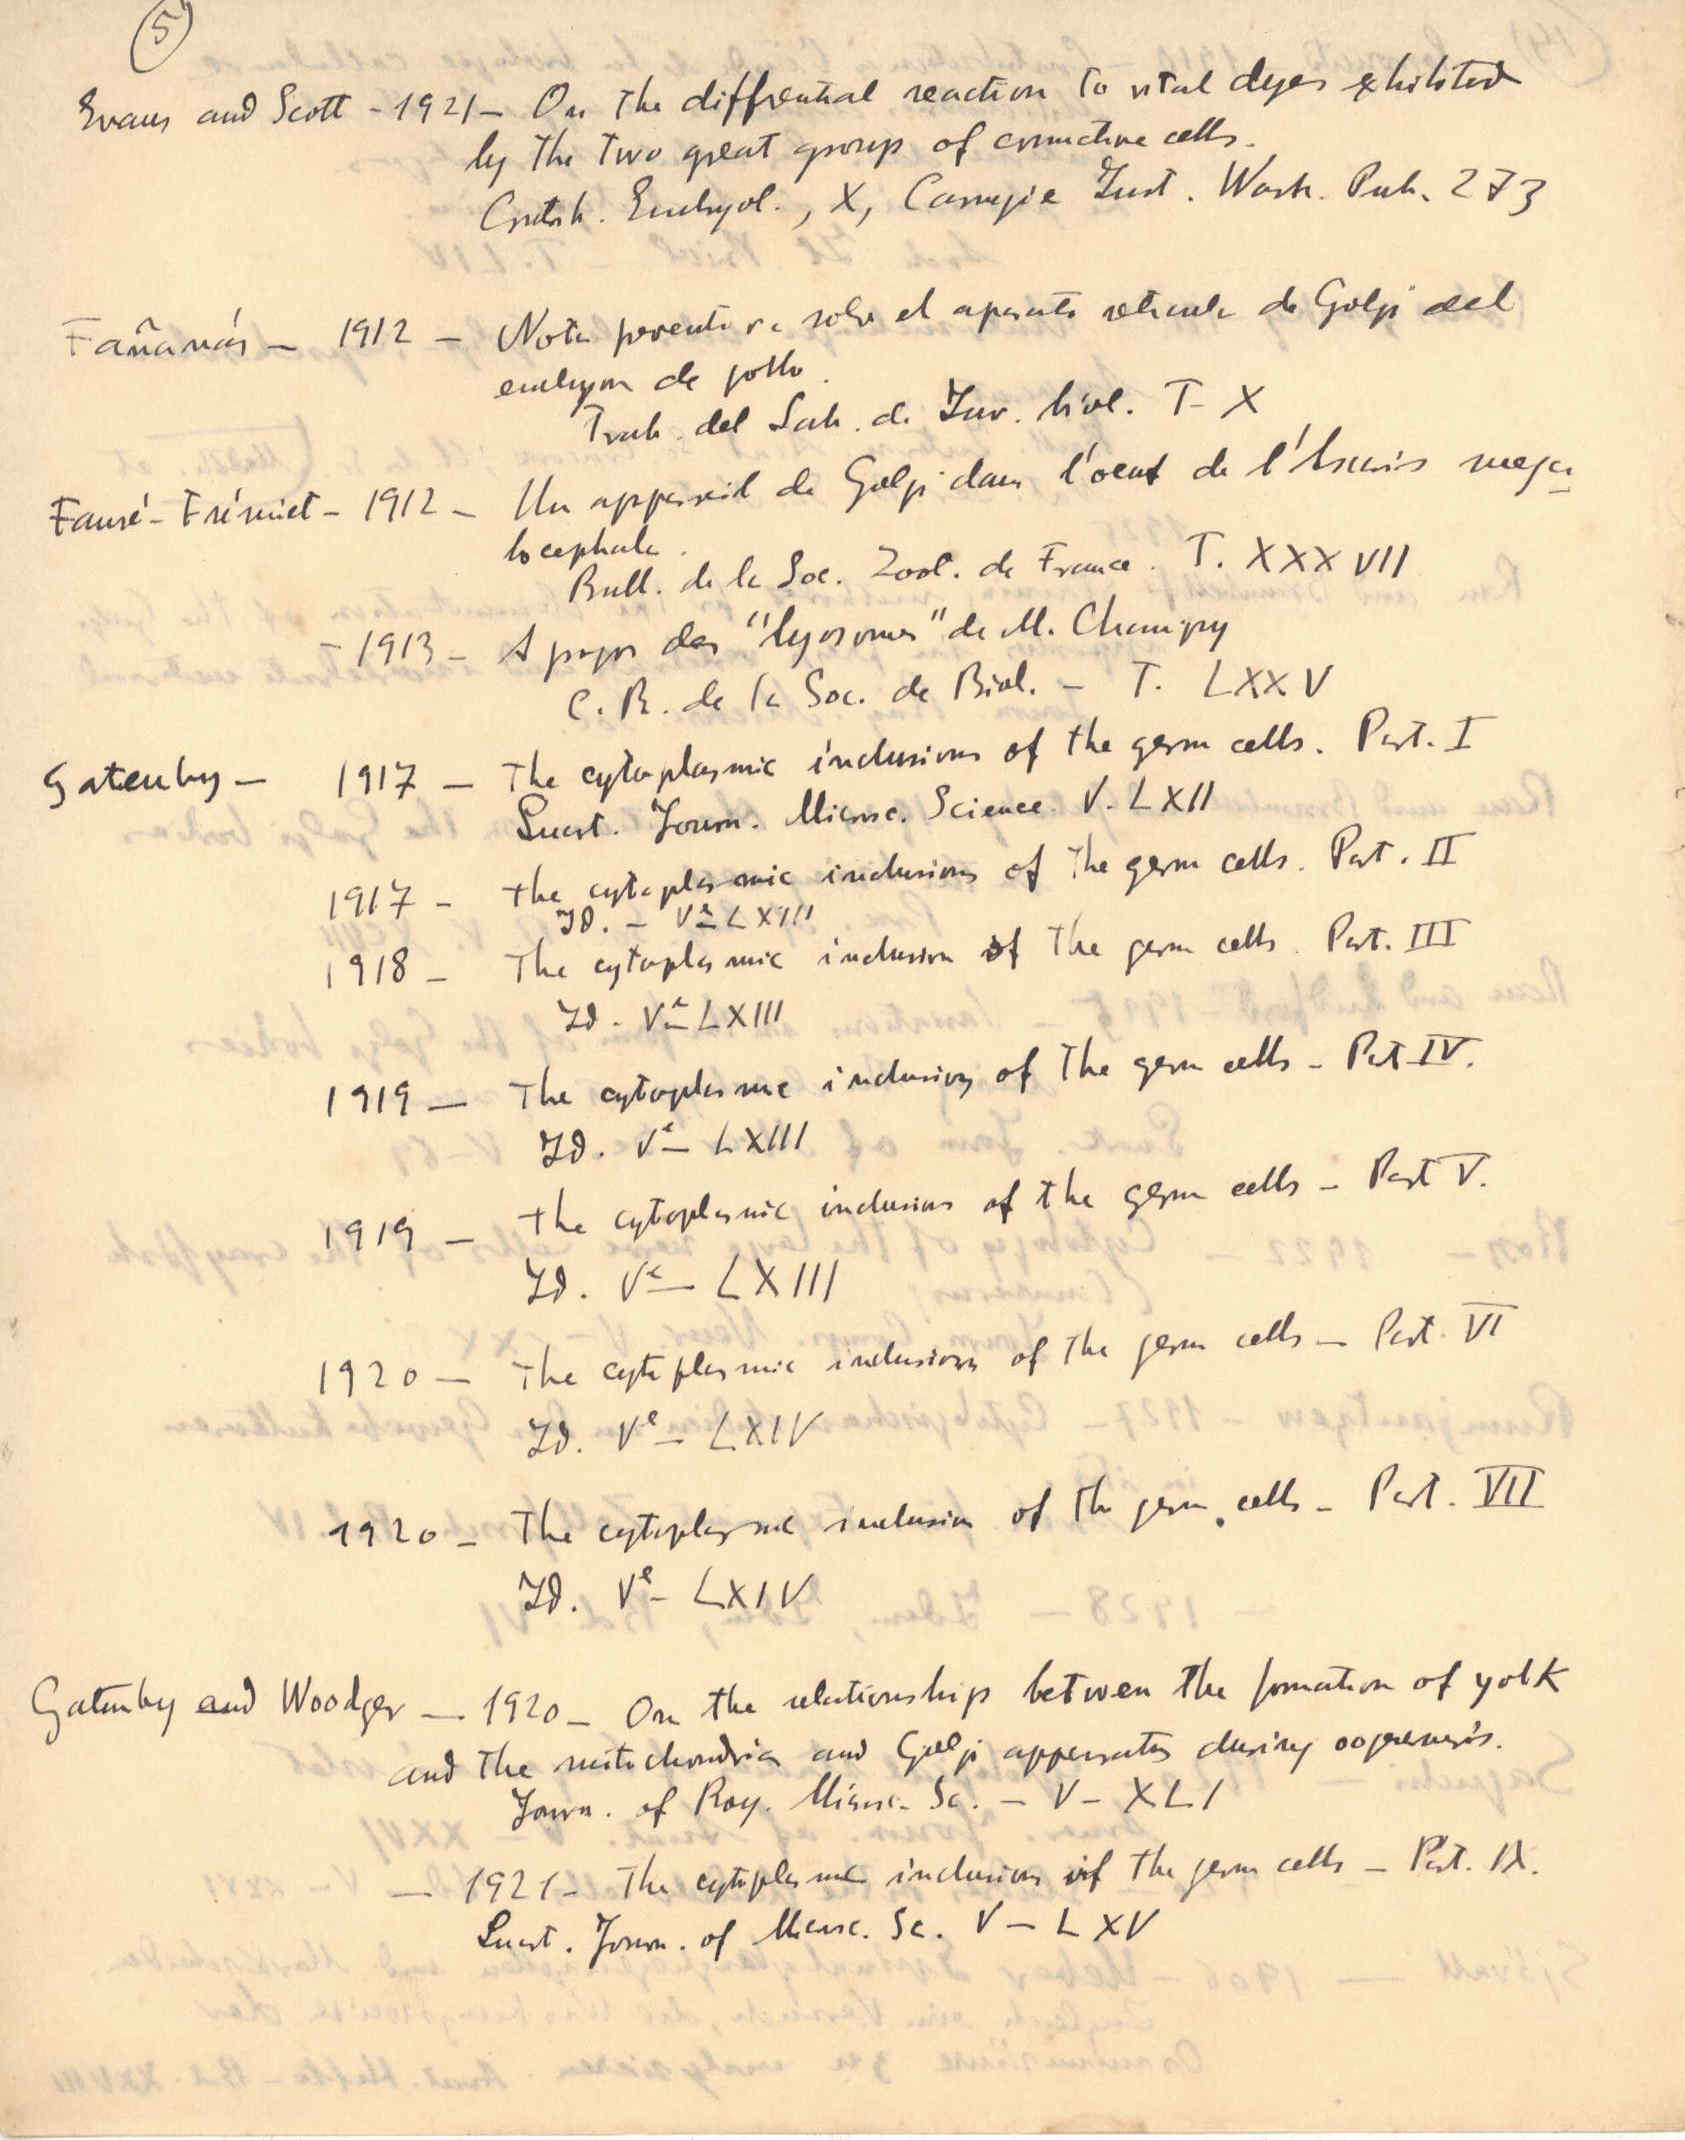 5
Evans and Scott - 1921 - On the diffrential reaction to vital dyes exhibited
by the two great groups of connective cells.
Contrib. Embryol., X, Carnegie Inst. Wash. Pub. 273
Fañanás - 1912 - Nota preventiva sobre el aparato reticular de Golgi del
embryon de pollo.
Trab. del Lab. de Inv. biol. T - X
Fauré-Frémiet - 1912 - Un appareil de Golgi dans l'oeuf de l'Ascaris mega-
locephala.
Bull. de la Soc. Zool. de France. T. XXXVII
- 1913 - A propos des "lysosomes" de M. Champy
C. R. de la Soc. de Biol. - T. LXXV
Gatenby - 1917 - The cytoplasmic inclusions of the germ cells. Part. I
Quart. Journ. Microsc. Science. V. LXII
1917 - The cytoplasmic inclusions of the germ cells. Part. II
Id. - Ve - LXIII
1918 - The cytoplasmic inclusion of the germ cells. Part. III
Id. Ve - LXIII
1919 - The cytoplasmic inclusions of the germ cells - Part IV.
Id. Ve - LXIII
1919 - The cytoplasmic inclusions of the germ cells - Part V.
Id. Ve - LXIII
1920 - The cytoplasmic inclusions of the germ cells - Part. VI
Id. Ve - LXIV
1920 - The cytoplasmic inclusion of the germ cells - Part. VII
Id. Ve - LXIV
Gatenby and Woodger - 1920 - On the relationship between the formation of yolk
and the mitochondria and Golgi apparatus during oogenesis.
Journ. of Roy. Microsc. Sc. - V - XLI
- 1921 - The cytoplasmic inclusions of the germ cells - Part. IX.
Quart. Journ. of Microsc. Sc. V - LXV